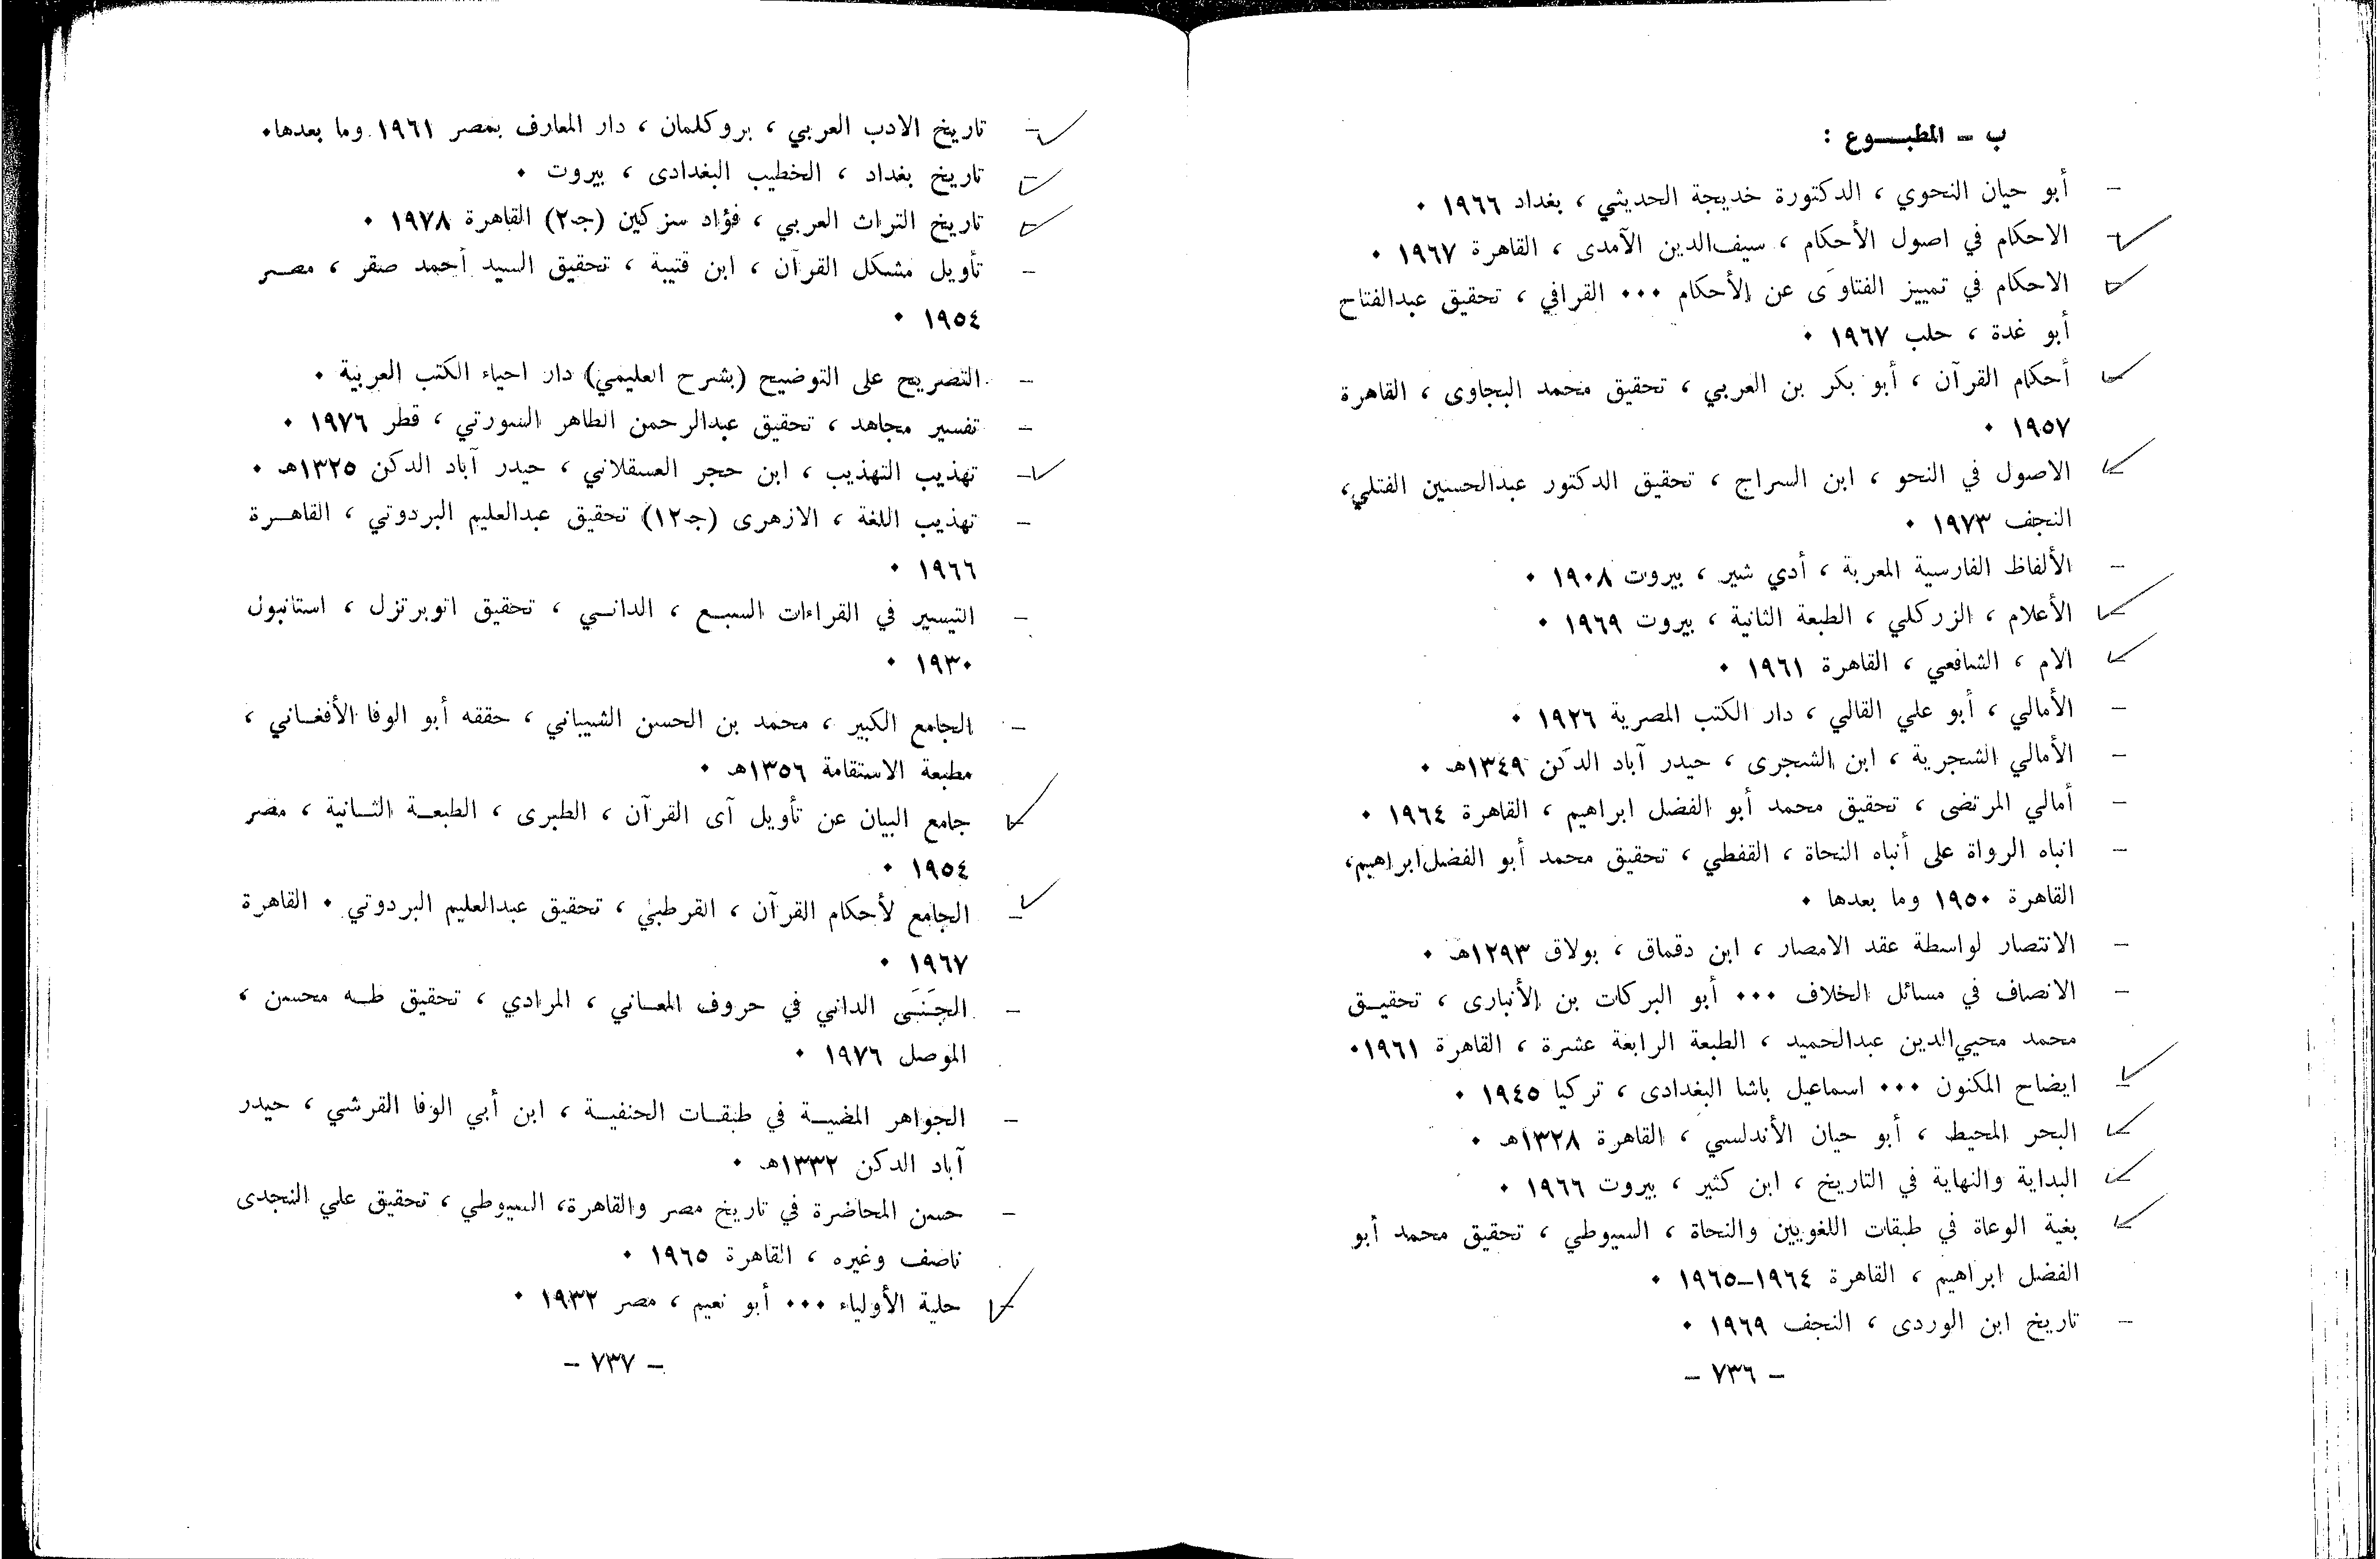 ب ــ المطبـــوع :
ــ أبو حيان النحوي ، الدكتورة خديجة الحديثي ، بغداد ١٩٦٦ ٠
ــ الاحكام في اصول الأحكام ، سيف‌الدين الآمدى ، القاهرة ١٩٦٧ ٠
ــ الاحكام في تمييز الفتاوَى عن الأحكام ٠٠٠ القرافي ، تحقيق عبدالفتاح
أبو غدة ، حلب ١٩٦٧ ٠
ــ أحكام القرآن ، أبو بكر بن العربي ، تحقيق محمد البجاوى ، القاهرة
١٩٥٧ ٠
ــ الاصول في النحو ، ابن السراج ، تحقيق الدكتور عبدالحسين الفتلي،
النجف ١٩٧٣ ٠
ــ الألفاظ الفارسية المعربة ، أدي شير ، بيروت ١٩٠٨ ٠
ــ الأعلام ، الزركلي ، الطبعة الثانية ، بيروت ١٩٦٩ ٠
ــ الام ، الشافعي ، القاهرة ١٩٦١ ٠
ــ الأمالي ، أبو علي القالي ، دار الكتب المصرية ١٩٢٦ ٠
ــ الأمالي الشجرية ، ابن الشجرى ، حيدر آباد الدكن ١٣٤٩هـ ٠
ــ أمالي المرتضى ، تحقيق محمد أبو الفضل ابراهيم ، القاهرة ١٩٦٤ ٠
ــ انباه الرواة على أنباه النحاة ، القفطي ، تحقيق محمد أبو الفضل ابراهيم،
القاهرة ١٩٥٠ وما بعدها ٠
ــ الانتصار لواسطة عقد الامصار ، ابن دقماق ، بولاق ١٢٩٣هـ ٠
ــ الانصاف في مسائل الخلاف ٠٠٠ أبو البركات بن الأنبارى ، تحقيــق
محمد محيي‌الدين عبدالحميد ، الطبعة الرابعة عشرة ، القاهرة ١٩٦١٠
ــ ايضاح المكنون ٠٠٠ اسماعيل باشا البغدادى ، تركيا ١٩٤٥ ٠
ــ البحر المحيط ، أبو حيان الأندلسي ، القاهرة ١٣٢٨هـ ٠
ــ البداية والنهاية في التاريخ ، ابن كثير ، بيروت ١٩٦٦ ٠
ــ بغية الوعاة في طبقات اللغويين والنحاة ، السيوطي ، تحقيق محمد أبو
الفضل ابراهيم ، القاهرة ١٩٦٤ــ١٩٦٥ ٠
ــ تاريخ ابن الوردى ، النجف ١٩٦٩ ٠
ــ ٧٣٦ ــ
ــ تاريخ الادب العربي ، بروكلمان ، دار المعارف بمصر ١٩٦١ وما بعدها٠
ــ تاريخ بغداد ، الخطيب البغدادى ، بيروت ٠
ــ تاريخ التراث العربي ، فؤاد سزكين (جـ٢) القاهرة ١٩٧٨ ٠
ــ تأويل مشكل القرآن ، ابن قتيبة ، تحقيق السيد أحمد صقر ، مصــر
١٩٥٤ ٠
ــ التصريح على التوضيح (بشرح العليمي) دار احياء الكتب العربية ٠
ــ تفسير مجاهد ، تحقيق عبدالرحمن الطاهر السورتي ، قطر ١٩٧٦ ٠
ــ تهذيب التهذيب ، ابن حجر العسقلاني ، حيدر آباد الدكن ١٣٢٥هـ ٠
ــ تهذيب اللغة ، الازهرى (جـ١٢) تحقيق عبدالعليم البردوتي ، القاهــرة
١٩٦٦ ٠
ــ التيسير في القراءات السبــع ، الدانــي ، تحقيق اتوبرتزل ، استانبول
١٩٣٠ ٠
ــ الجامع الكبير ، محمد بن الحسن الشيباني ، حققه أبو الوفا الأفغــاني ،
مطبعة الاستقامة ١٣٥٦هـ ٠
ــ جامع البيان عن تأويل آى القرآن ، الطبرى ، الطبعــة الثــانية ، مصر
١٩٥٤ ٠
ــ الجامع لأحكام القرآن ، القرطبي ، تحقيق عبدالعليم البردوتي ٠ القاهرة
١٩٦٧ ٠
ــ الجَنَــى الداني في حروف المعــاني ، المرادي ، تحقيق طــه محسن ،
الموصل ١٩٧٦ ٠
ــ الجواهر المضيــة في طبقــات الحنفيــة ، ابن أبي الوفا القرشي ، حيدر
آباد الدكن ١٣٣٢هـ ٠
ــ حسن المحاضرة في تاريخ مصر والقاهرة، السيوطي ، تحقيق علي النجدى
ناصف وغيره ، القاهرة ١٩٦٥ ٠
ــ حلية الأولياء ٠٠٠ أبو نعيم ، مصر ١٩٣٢ ٠
ــ ٧٣٧ ــ